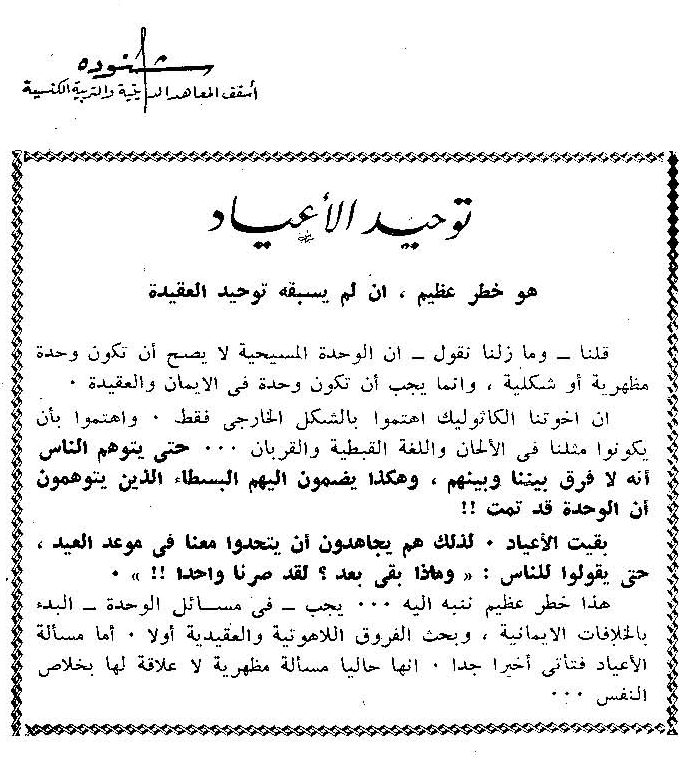 شنوده
أسقف المعاهد الدينية والتربية الكنسية
توحيد الأعياد
هو خطر عظيم ، ان لم يسبقه توحيد العقيدة
قلنا ـ وما زلنا نقول ـ ان الوحدة المسيحية لا يصح أن تكون وحدة
مظهرية أو شكلية ، وانما يجب أن تكون وحدة فى الايمان والعقيدة ٠
ان اخوتنا الكاثوليك اهتموا بالشكل الخارجى فقط ٠ واهتموا بأن
يكونوا مثلنا فى الألحان واللغة القبطية والقربان ٠٠٠ حتى يتوهم الناس
أنه لا فرق بيننا وبينهم ، وهكذا يضمون اليهم البسطاء الذين يتوهمون
أن الوحدة قد تمت !!
بقيت الأعياد ٠ لذلك هم يجاهدون أن يتحدوا معنا فى موعد العيد ،
حتى يقولوا للناس : « وماذا بقى بعد ؟ لقد صرنا واحدا !! » ٠
هذا خطر عظيم ننبه اليه ٠٠٠ يجب ـ فى مسائل الوحدة ـ البدء
بالخلافات الايمانية ، وبحث الفروق اللاهوتية والعقيدية أولا ٠ أما مسألة
الأعياد فتأتى أخيرا جدا ٠ انها حاليا مسألة مظهرية لا علاقة لها بخلاص
النفس ٠٠٠